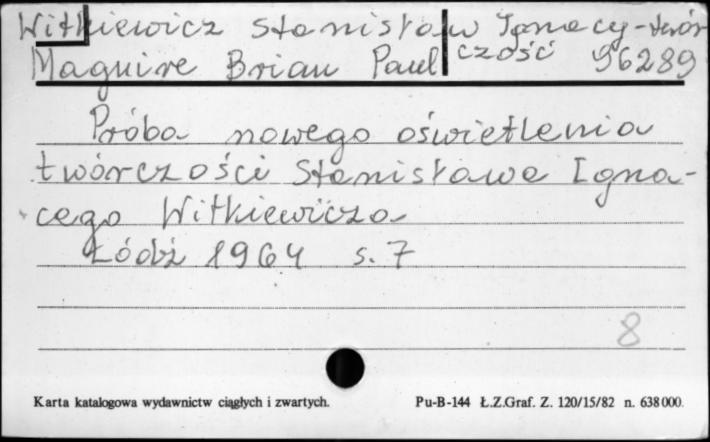 Witkiewicz Stanisław Ignacy - twór
czość
Maguire Brian Paul 96289
Próba nowego oświetlenia
twórczości Stanisława Igna-
cego Witkiewicza
Łódź 1964 s. 7
8
Karta katalogowa wydawnictw ciągłych i zwartych. Pu-B-144 Ł.Z.Graf. Z. 120/15/82 n. 638000.